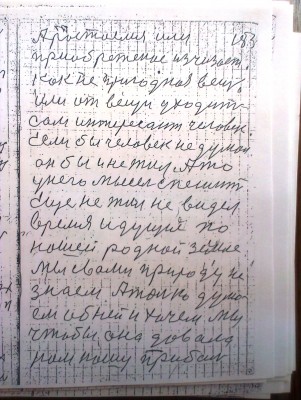 Простоелия или 183
приобретение изчизает
как не пригодная вещ.
или от вещи уходит
сам интересант человек.
Если бы человек не думал
он бы и не жил. А то
у него мысел спешит
еще не жил не видел
время идущие по
нашей родной земле
Мы с вами природу не
знаем. А толко дума
ем об ней и хочем мы
чтобы она давала
нам нашу прибал